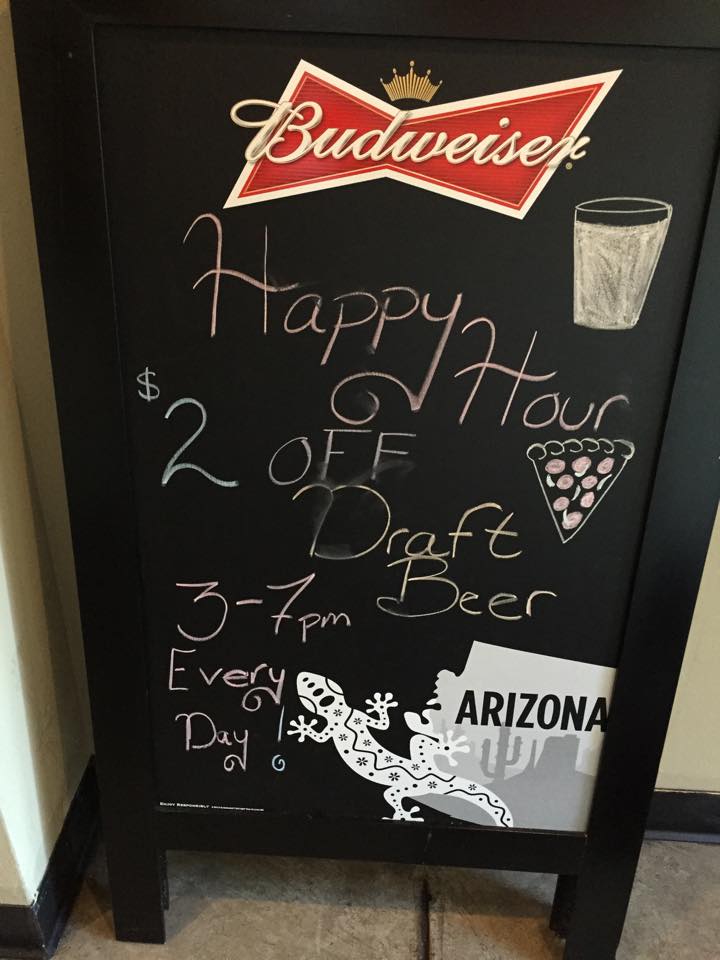 Budweiser
Happy
Hour
$2 OFF
Draft
Beer
3-7pm
Every
Day!
ARIZONA
ENJOY RESPONSIBLY